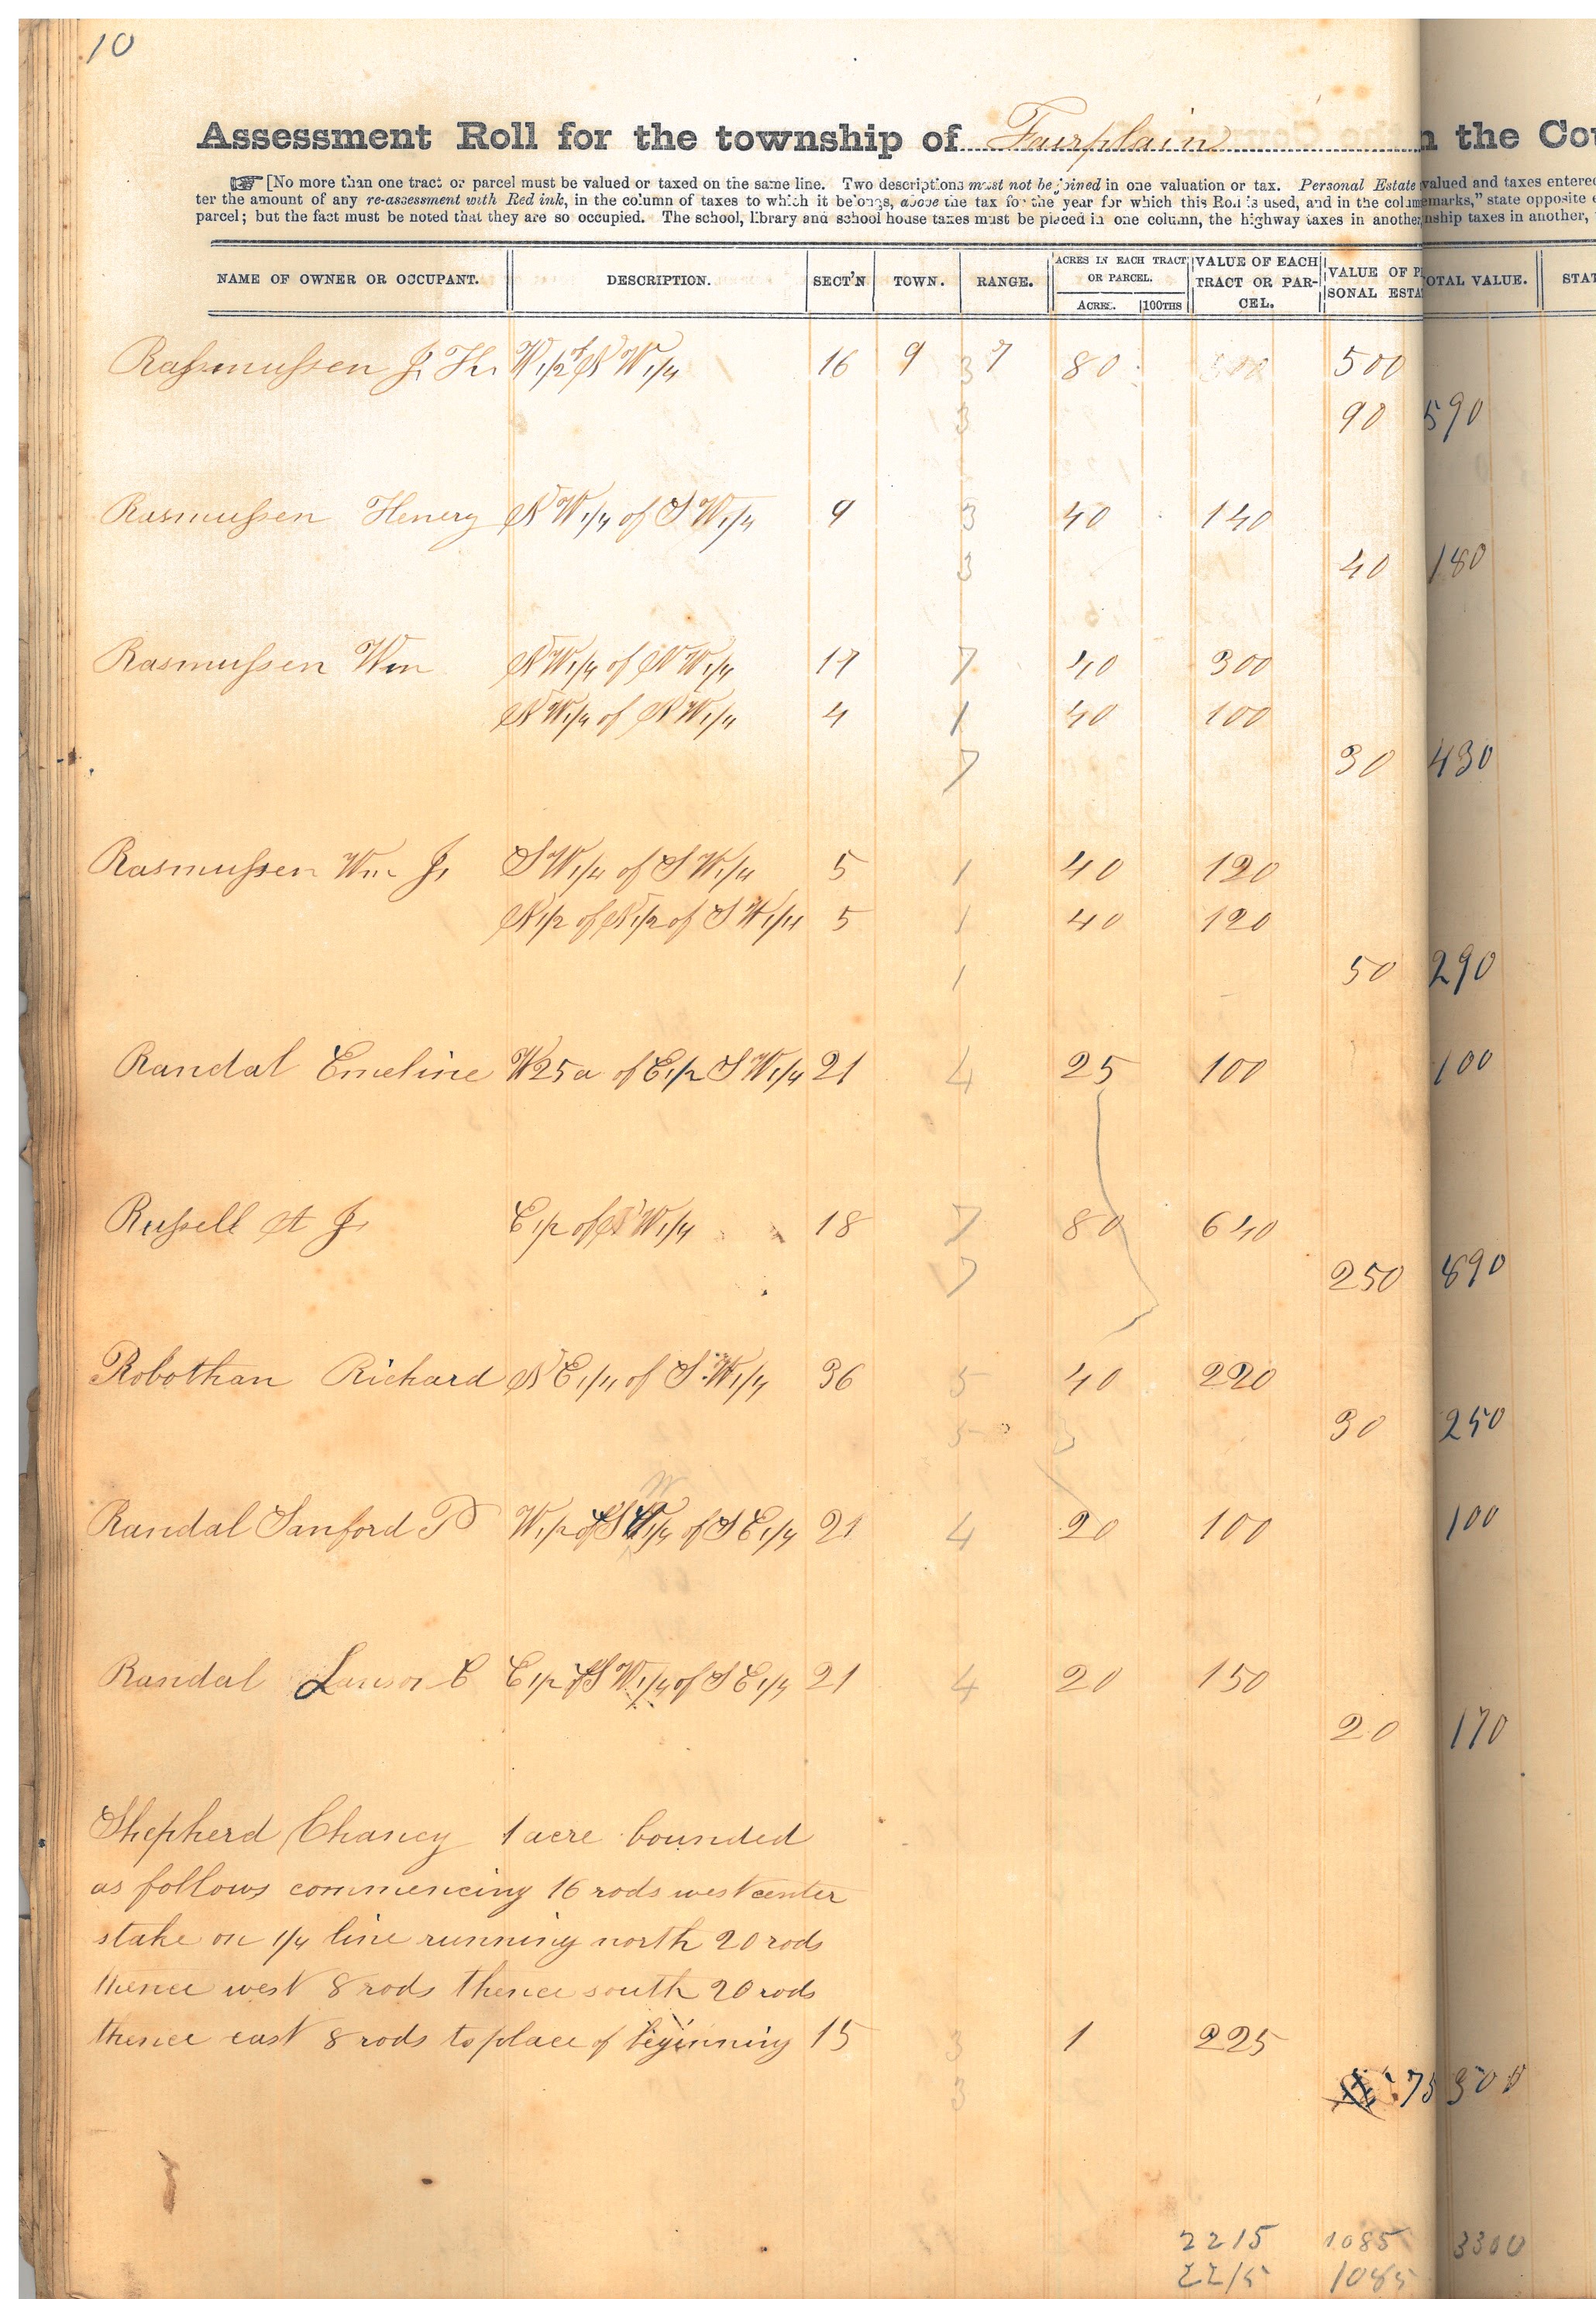 10
Assessment Roll for the township of Fairplain n the Cou
[No more than one tract or parcel must be valued or taxed on the same line. Two descriptions must not be joined in one valuation or tax. Personal Estate valued and taxes entered
ter the amount of any re-assessment with Red ink, in the column of taxes to which it belongs, above the tax for the year for which this Roll is used, and in the colum emarks," state opposite e
parcel; but the fact must be noted that they are so occupied. The school, library and school house taxes must be placed in one column, the highway taxes in another, nship taxes in another,
NAME OF OWNER OR OCCUPANT. DESCRIPTION. SECT'N TOWN. RANGE. ACRES IN EACH TRACT OR PARCEL. ACRES. 100THS VALUE OF EACH TRACT OR PARCEL. VALUE OF PE SONAL ESTA OTAL VALUE. STAT
Rasmussen J. H. W 1/2 of N W 1/4 16 9 3 7 80 500
3 90 590
Rasmussen Henery N W 1/4 of S W 1/4 9 3 40 140
3 40 180
Rasmussen Wm N W 1/4 of N W 1/4 17 7 40 300
N W 1/4 of N W 1/4 4 1 40 100
7 30 430
Rasmussen Wm Jr S W 1/4 of S W 1/4 5 1 40 120
N 1/2 of N 1/2 of S W 1/4 5 1 40 120
1 50 290
Randal Emeline W 25 a of E 1/2 S W 1/4 21 4 25 100 100
Russell A J. E 1/2 of N W 1/4 18 7 80 640
7 250 890
Robothan Richard N E 1/4 of S W 1/4 36 5 40 220
5 3 30 250
Randal Sanford P W 1/2 of S W 1/4 of S E 1/4 21 4 20 100 100
Randal C E 1/2 of S W 1/4 of S E 1/4 21 4 20 150
20 170
Shepherd Chancy 1 acre bounded
as follows commencing 16 rods west center
stake on 1/4 line running north 20 rods
thence west 8 rods thence south 20 rods
thence east 8 rods to place of beginning 15 3 1 225
3 75 300
2215 1085 3300
2215 1085